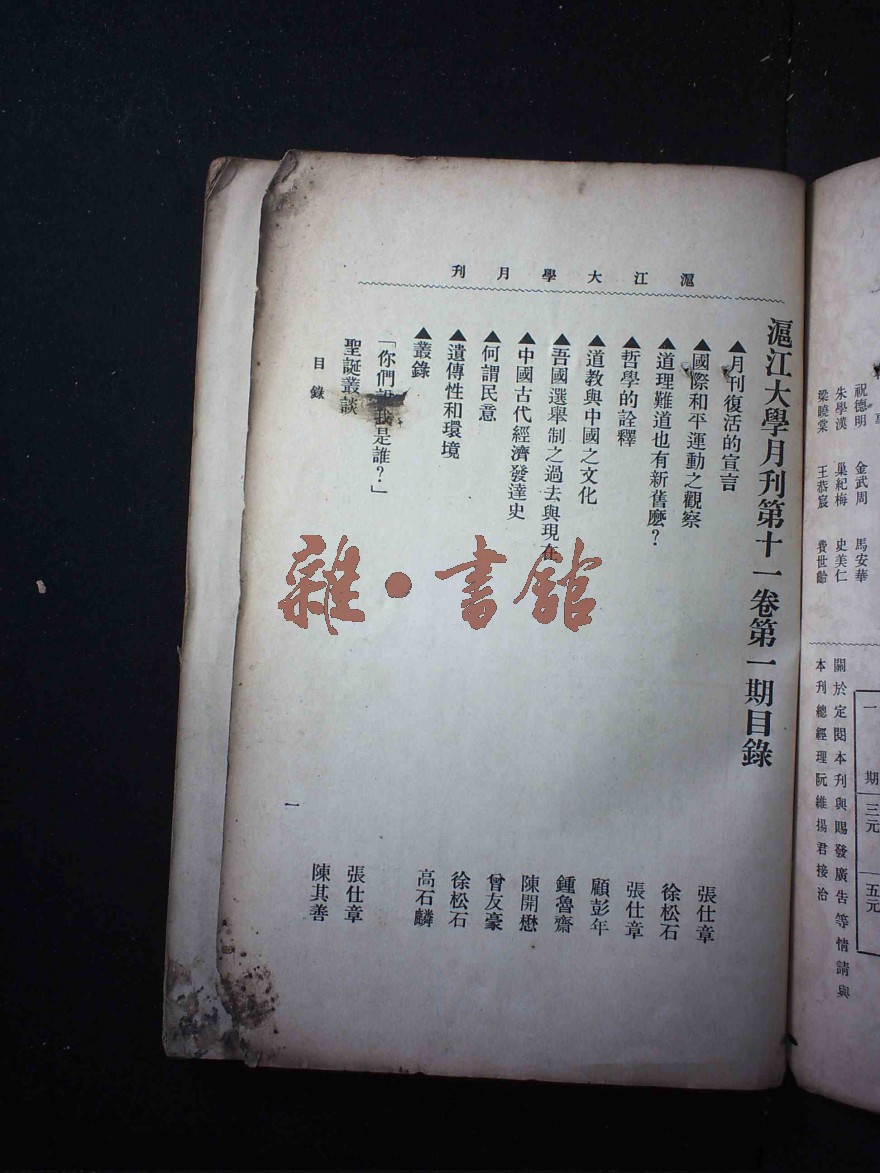 祝德明 金武周 馬安華
朱學漢 巢紀梅 史美仁
梁曉棠 王恭宸 費世齡
一期 三元 五元
關於定閱本刊與賜發廣告等情請與
本刊總經理阮維揚君接洽
滬江大學月刊
滬江大學月刊第十一卷第一期目錄
▲月刊復活的宣言 張仕章
▲國際和平運動之觀察 徐松石
▲道理難道也有新舊麽？ 張仕章
▲哲學的詮釋 顧彭年
▲道教與中國之文化 鍾魯齋
▲吾國選舉制之過去與現在 陳開懋
▲中國古代經濟發達史 曾友豪
▲何謂民意 徐松石
▲遺傳性和環境 高石麟
▲叢錄
「你們說我是誰？」 張仕章
聖誕叢談 陳其善
目錄
一
雜·書館